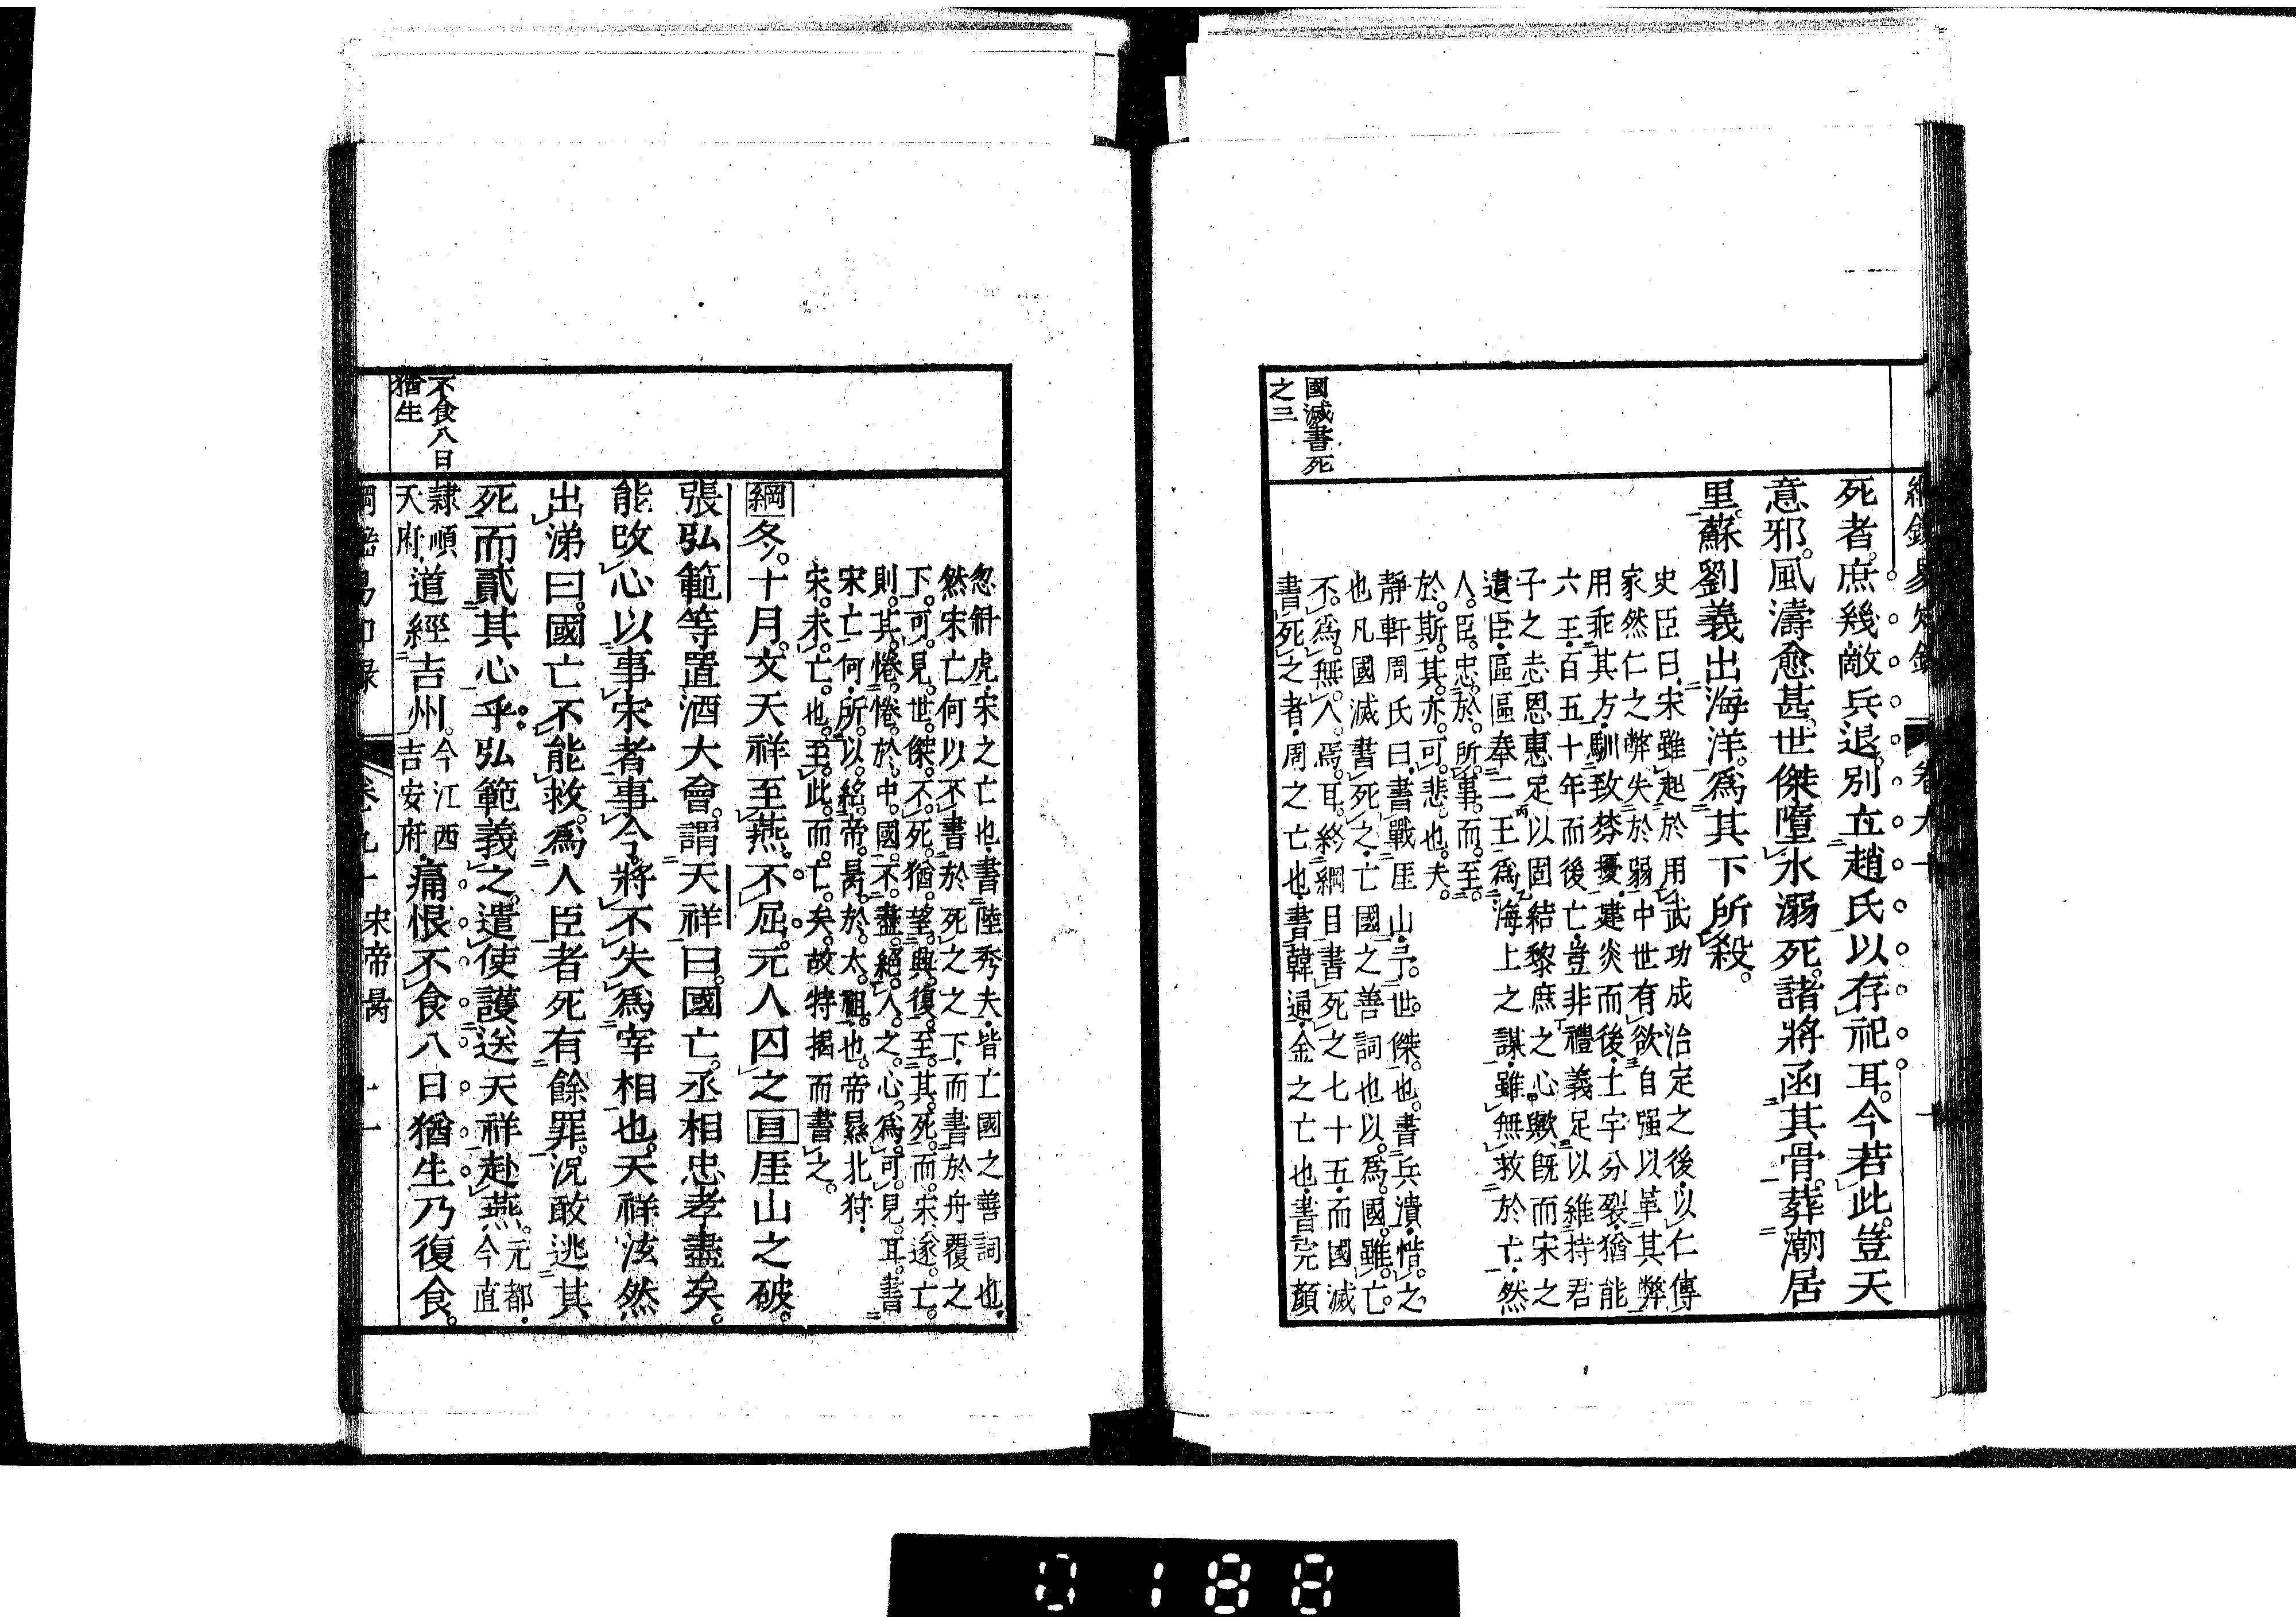 死者。庶幾敵兵退。別立趙氏以存祀耳。今若此。豈天
意邪。風濤愈甚。世傑墮水溺死。諸將函其骨。葬潮居
里。蘇劉義出海洋。爲其下所殺。
史臣曰。宋雖起於用武功成治定之後。以仁傳
家。然仁之弊失於弱。中世有欲自强以革其弊
用乖其方。馴致棼擾。建炎而後。土宇分裂。猶能
六王。百五十年而後亡。豈非禮義足以維持君
子之志。恩惠足以固結黎庶之心歟。旣而宋之
遺臣。區區奉二王爲海上之謀。雖無救於亡。然
人臣忠於所事。而至
於斯。其亦可悲也夫。
靜軒周氏曰。書戰厓山。予世傑也。書兵潰。惜之
也。凡國滅書死之。亡國之善詞也。以爲國雖亡。
不爲無人焉耳。終綱目書死之七十五。而國滅
書死之者。周之亡也。書韓通。金之亡也。書完顏
國滅書死
之三
忽斜虎。宋之亡也。書陸秀夫。皆亡國之善詞也。
然宋亡何以不書於死之之下。而書於舟覆之
下。可見世傑不死。猶望興復。至其死而宋遂亡。
則其惓惓於中國。不盡絕人之心。爲可見耳。書
宋亡何。所以紹帝昺於太祖也。帝㬎北狩。
宋未亡也。至此而亡矣。故特揭而書之。
綱冬。十月。文天祥至燕。不屈。元人囚之目厓山之破。
張弘範等置酒大會。謂天祥曰。國亡。丞相忠孝盡矣。
能改心以事宋者事今。將不失爲宰相也。天祥泫然
出涕曰。國亡不能救。爲人臣者死有餘罪。況敢逃其
死而貳其心乎。弘範義之。遣使護送天祥赴燕。元都。今直
隸順天府。道經吉州。今江西吉安府。痛恨不食八日猶生。乃復食。
不食八日
猶生
宋帝昺